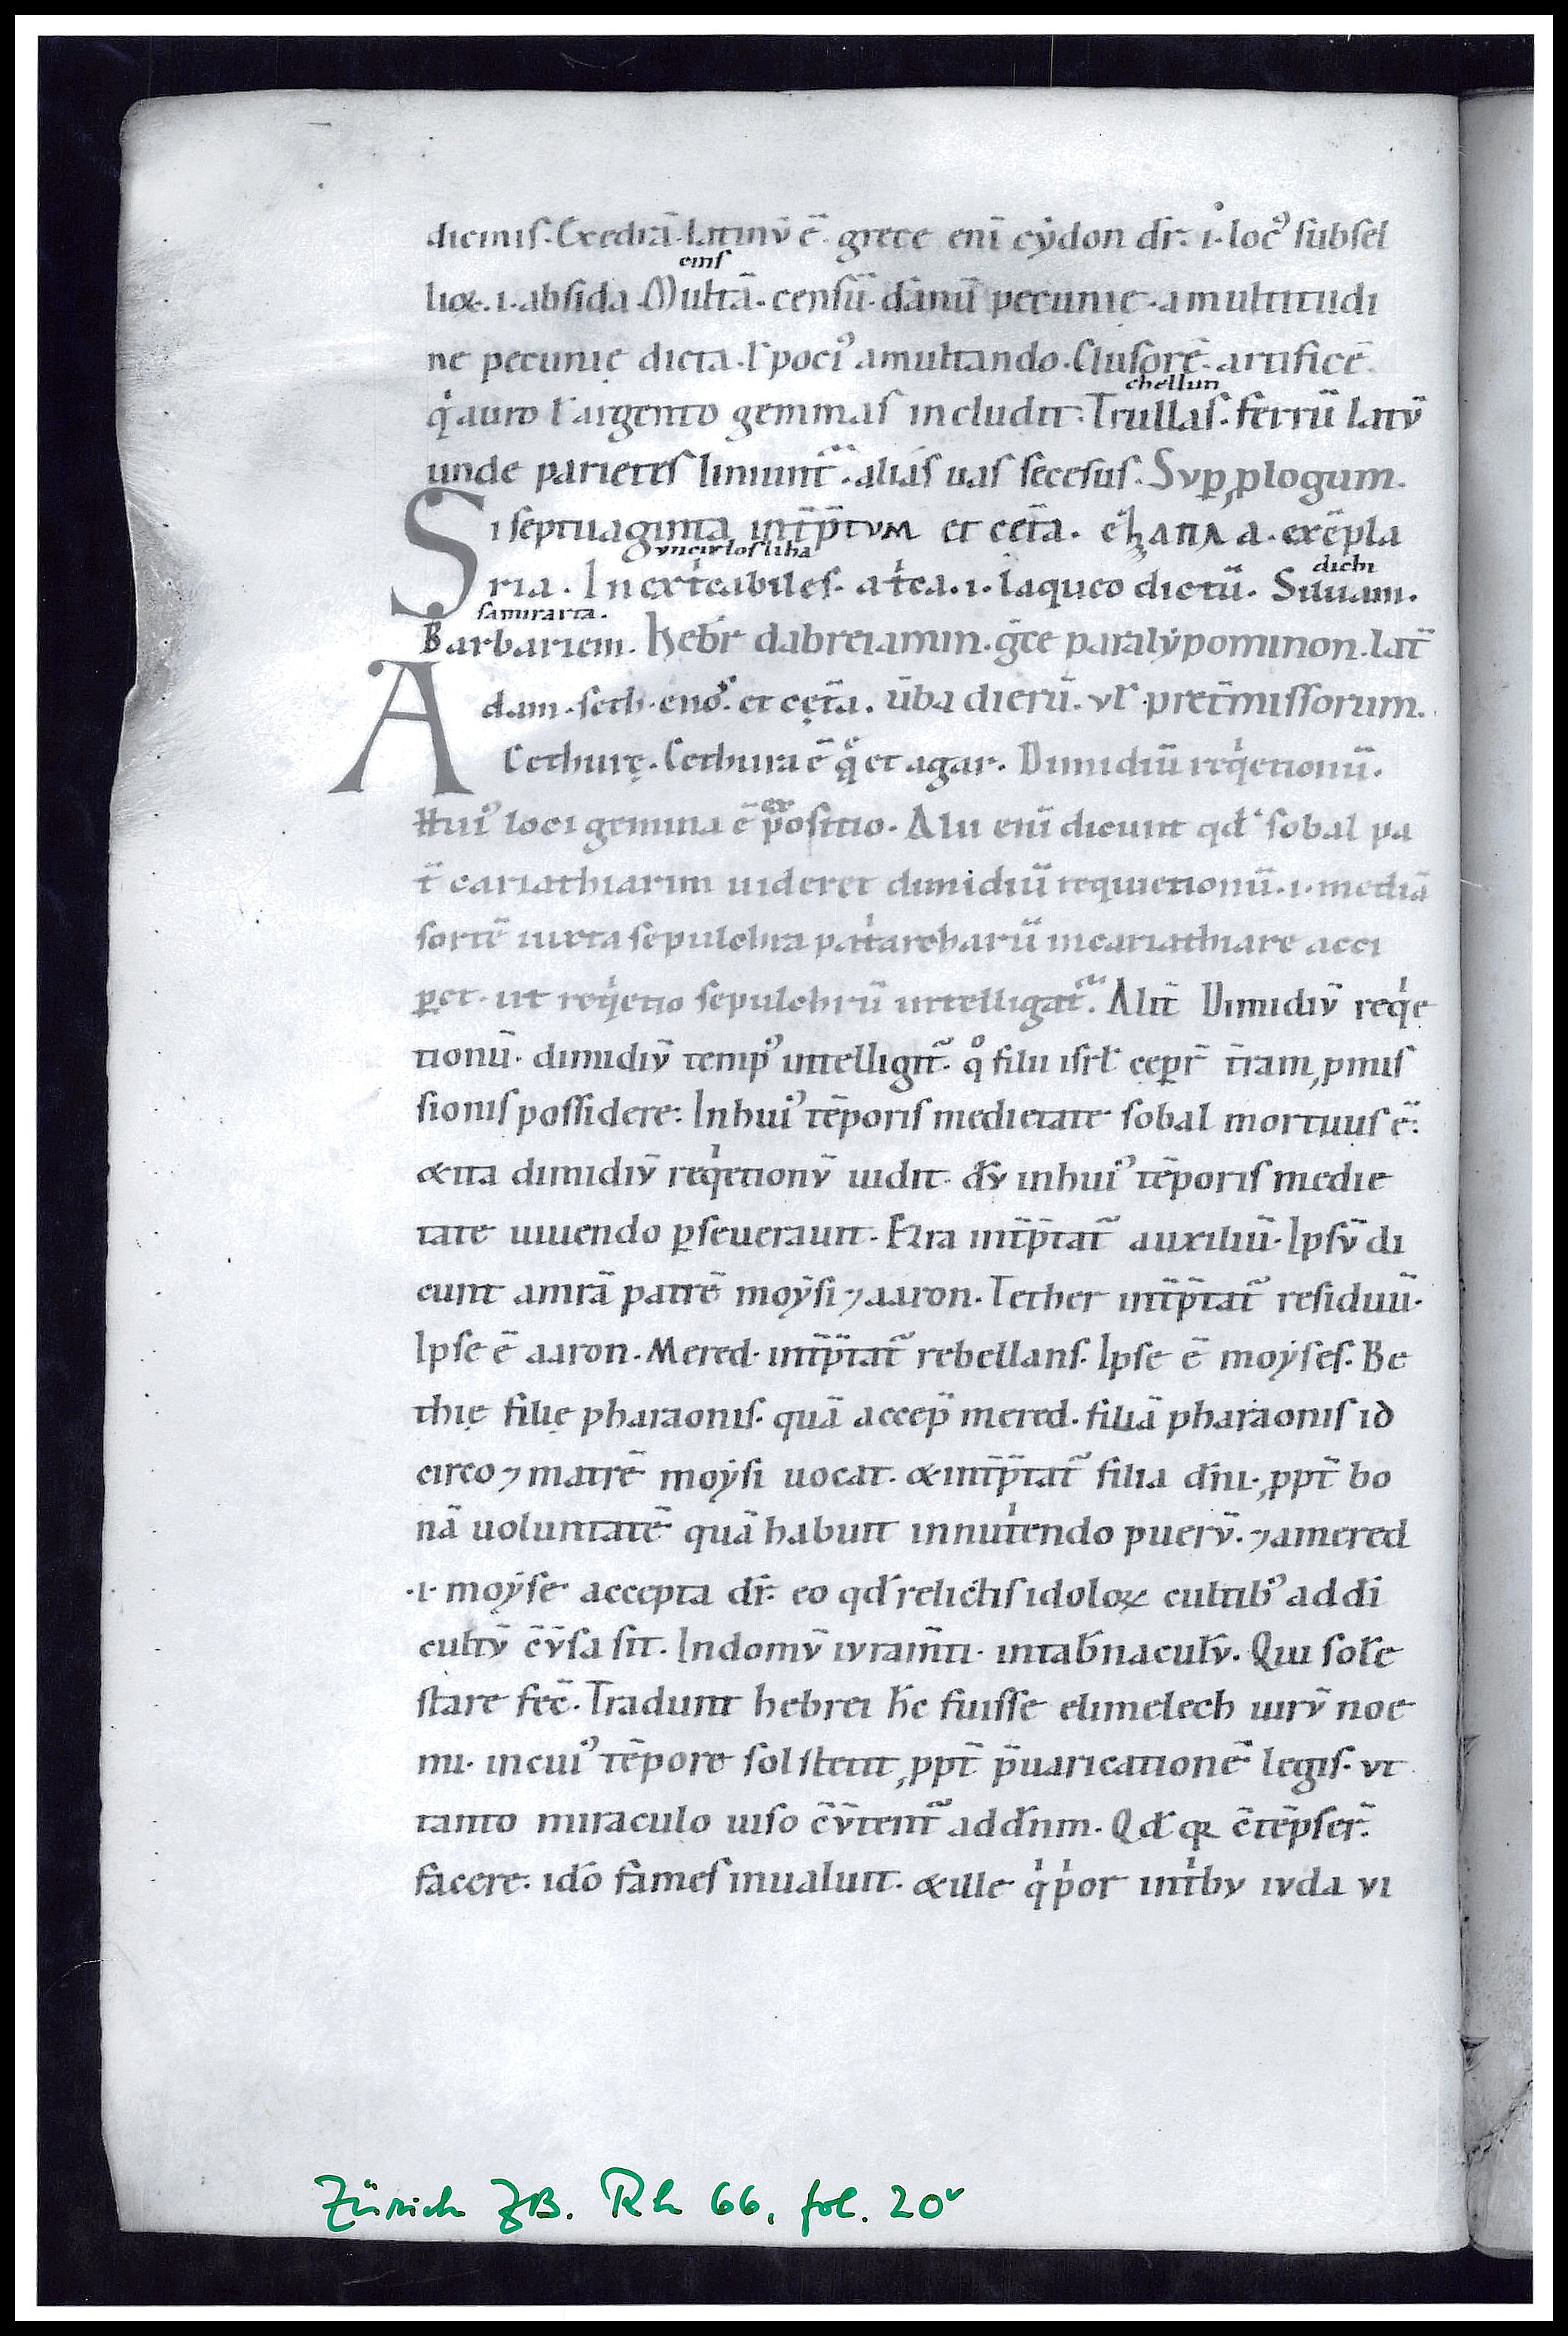 dicimıs. Exedrā. latinū ē. grece eni̅ cẏdon dr̅. i. locꝰ subsel
lioꝝ. i. absida. Multā. censū. dānū pecunię. a multitudi
eins
ne pecunię dicta. ł pociꝰ a multando. Clusorē. artificē.
chellun
qͥ auro ł argento gemmas includit. Trullas. ferrū latū
unde parietes liniunt᷑. aliás uas secesus. Suꝑ ꝓlogum.
Si septuaginta int̅p̅tum et cet̅a. exe̅pla
uncirlosliha
dichi
ria. Inextͥcabiles. atͥca. i. laqueo dictū. Siluam.
samirarta.
Barbariem. hebr̅ dabreiamin. gͬce paralẏpominon. lat̅
Adam. seth. enoˢ. et cęt̅a. u̅ba dierū. ul̅. pret̅missorum.
Cethurę. Cethura ē qͦ et agar. Dimidiū reqͥetionū.
Huiꝰ loci gemina ē p̅ositio. Alii eni̅ dicunt qd̅ sobal pa
ex
t̅ cariathiarim uideret dimidiū requietionū. i. mediā
sortē iuxta sepulchra patͥarcharū in cariathiare acci
ꝑet. ut reqͥetio sepulchrū intelligat᷑. Alit̅ Dimidiū reqͥe
tionū. dimidiū tempꝰ intelligit᷑. qͦ filii isrl̅ ceꝑr̅ t̅ram ꝓmis
sionis possidere. In huiꝰ tēporis medietate sobal mortuus ē.
& ita dimidiū reqͥetionū uidit. dū in huiꝰ tēporis medie
tate uiuendo ꝑseuerauit. Ezra int̅p̅tat᷑ auxiliū. Ipsū di
cunt amrā patrē moẏsi ⁊ aaron. Iether int̅p̅tat᷑ residuū.
Ipse ē aaron. Mered. int̅p̅tat᷑ rebellans. Ipse ē moẏses. Be
thię filię pharaonis. quā accep̅ mered. filiā pharaonis id
circo ⁊ matrē moẏsi uocat. & int̅p̅tat᷑ filia dn̅i. ꝓpt̅ bo
nā uoluntatē quā habuit in nutͥendo puerū. ⁊ a mered
.i. moẏse accepta dr̅. eo qd̅ relictis idoloꝝ cultibꝰ ad di
cultū cu̅sa sit. In domū iuram̅ti. in tab̅naculū. Qui sole̅
stare fec̅. Tradunt hebrei hc̅ fuisse elimelech uirū noe
mi. in cuiꝰ tēpore sol stetit ꝓpt̅ p̅uaricationē legis. ut
tanto miraculo uiso cu̅tent᷑ ad dn̅m. Qd̅ qꝛ ctēpser̅
facere. ido̅ fames inualuit. & ille qͥ pͥor in tͥbu iuda ui
Zürich ZB. Rh 66, fol. 20ᵛ